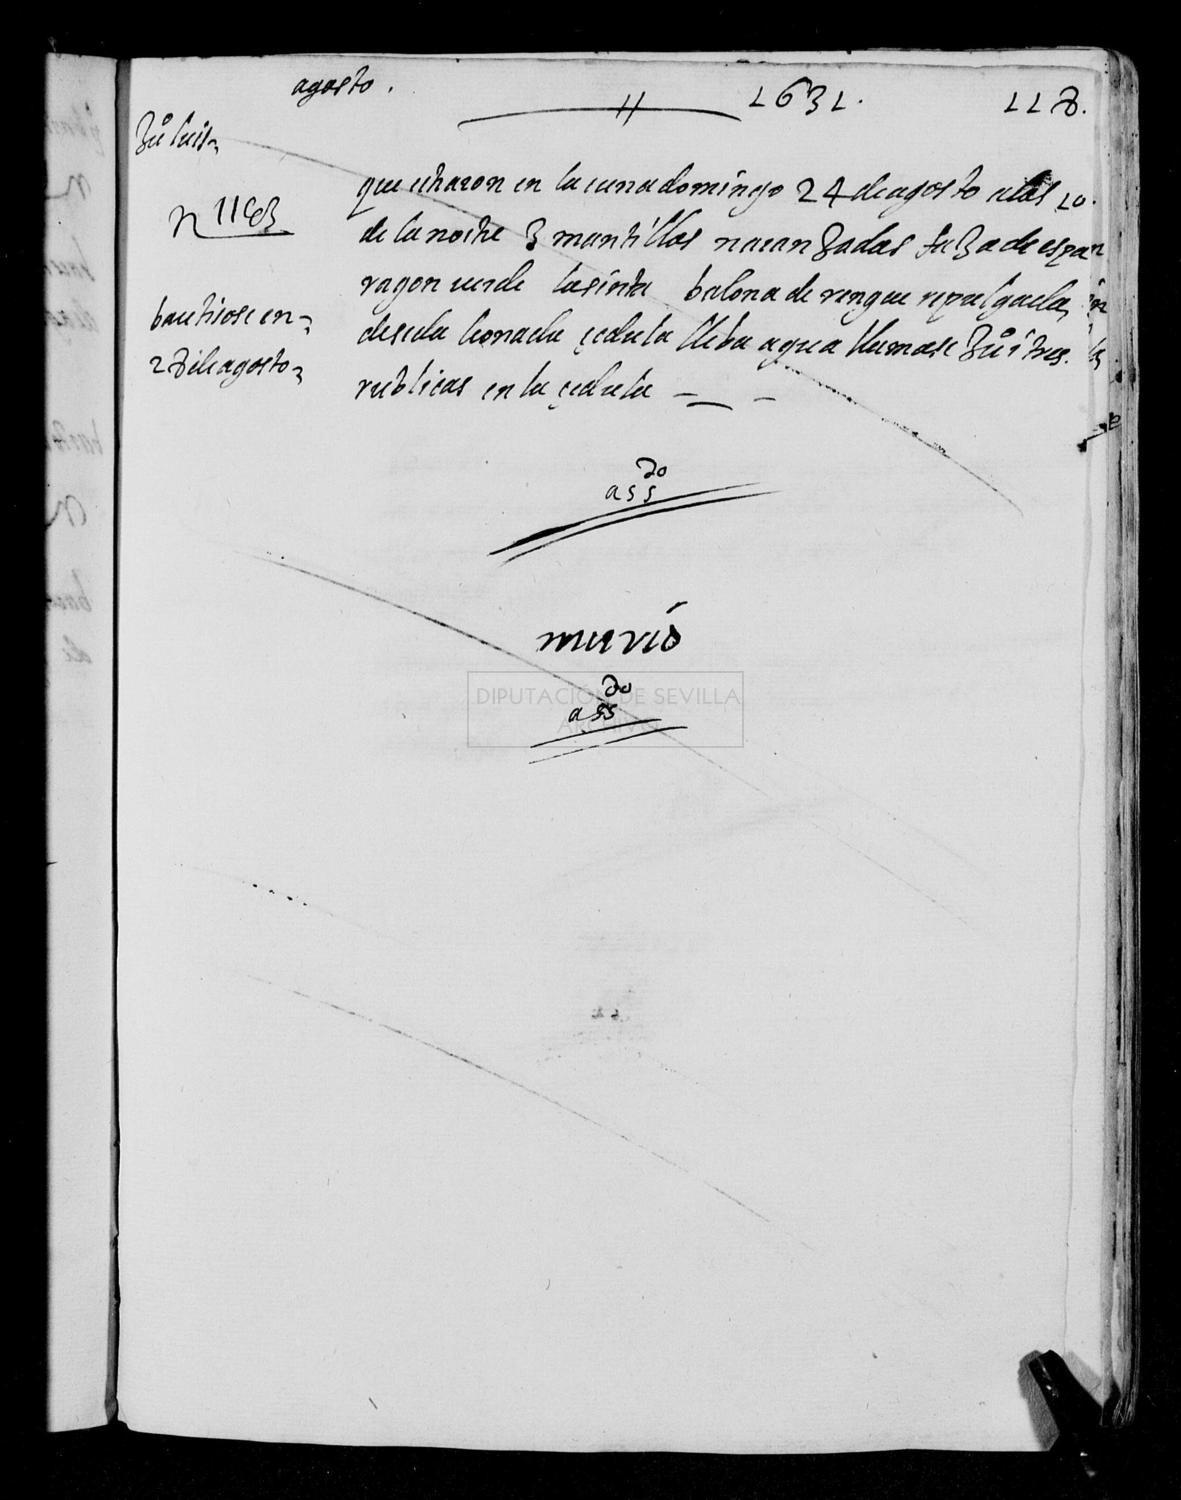 agosto .
1631.
118.
Juº luis
n 1183
bautiose en
28 de agosto
que echaron en la cuna domingo 24 de agosto a las 10.
de la noche 3 mantillas naranjadas faja de espar
ragon verde la sinta balona de rengue repulgada
de seda leonada çedula lleba agua llamase Juº i tres
rublicas en la çedula
assdo
murió
assdo
DIPUTACIÓN DE SEVILLA
ARCHIVO